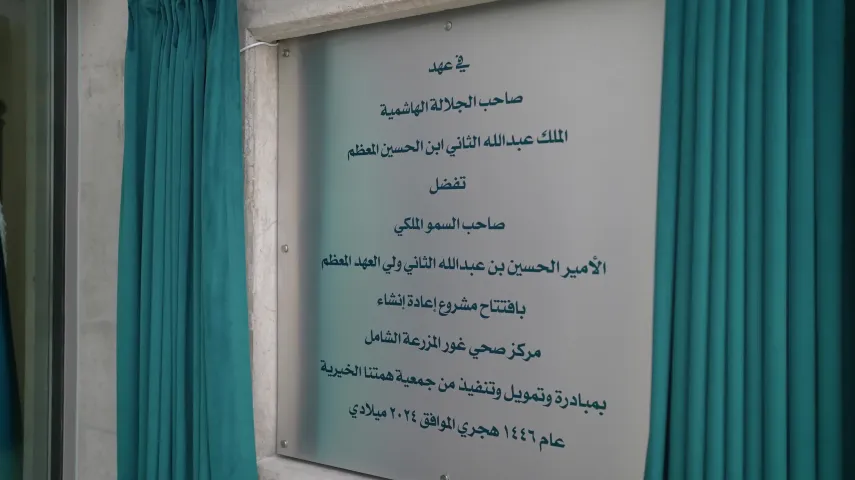 في عهد
صاحب الجلالة الهاشمية
الملك عبدالله الثاني ابن الحسين المعظم
تفضل
صاحب السمو الملكي
الأمير الحسين بن عبدالله الثاني ولي العهد المعظم
بافتتاح مشروع إعادة إنشاء
مركز صحي غور المزرعة الشامل
بمبادرة وتمويل وتنفيذ من جمعية همتنا الخيرية
عام ١٤٤٦ هجري الموافق ٢٠٢٤ ميلادي